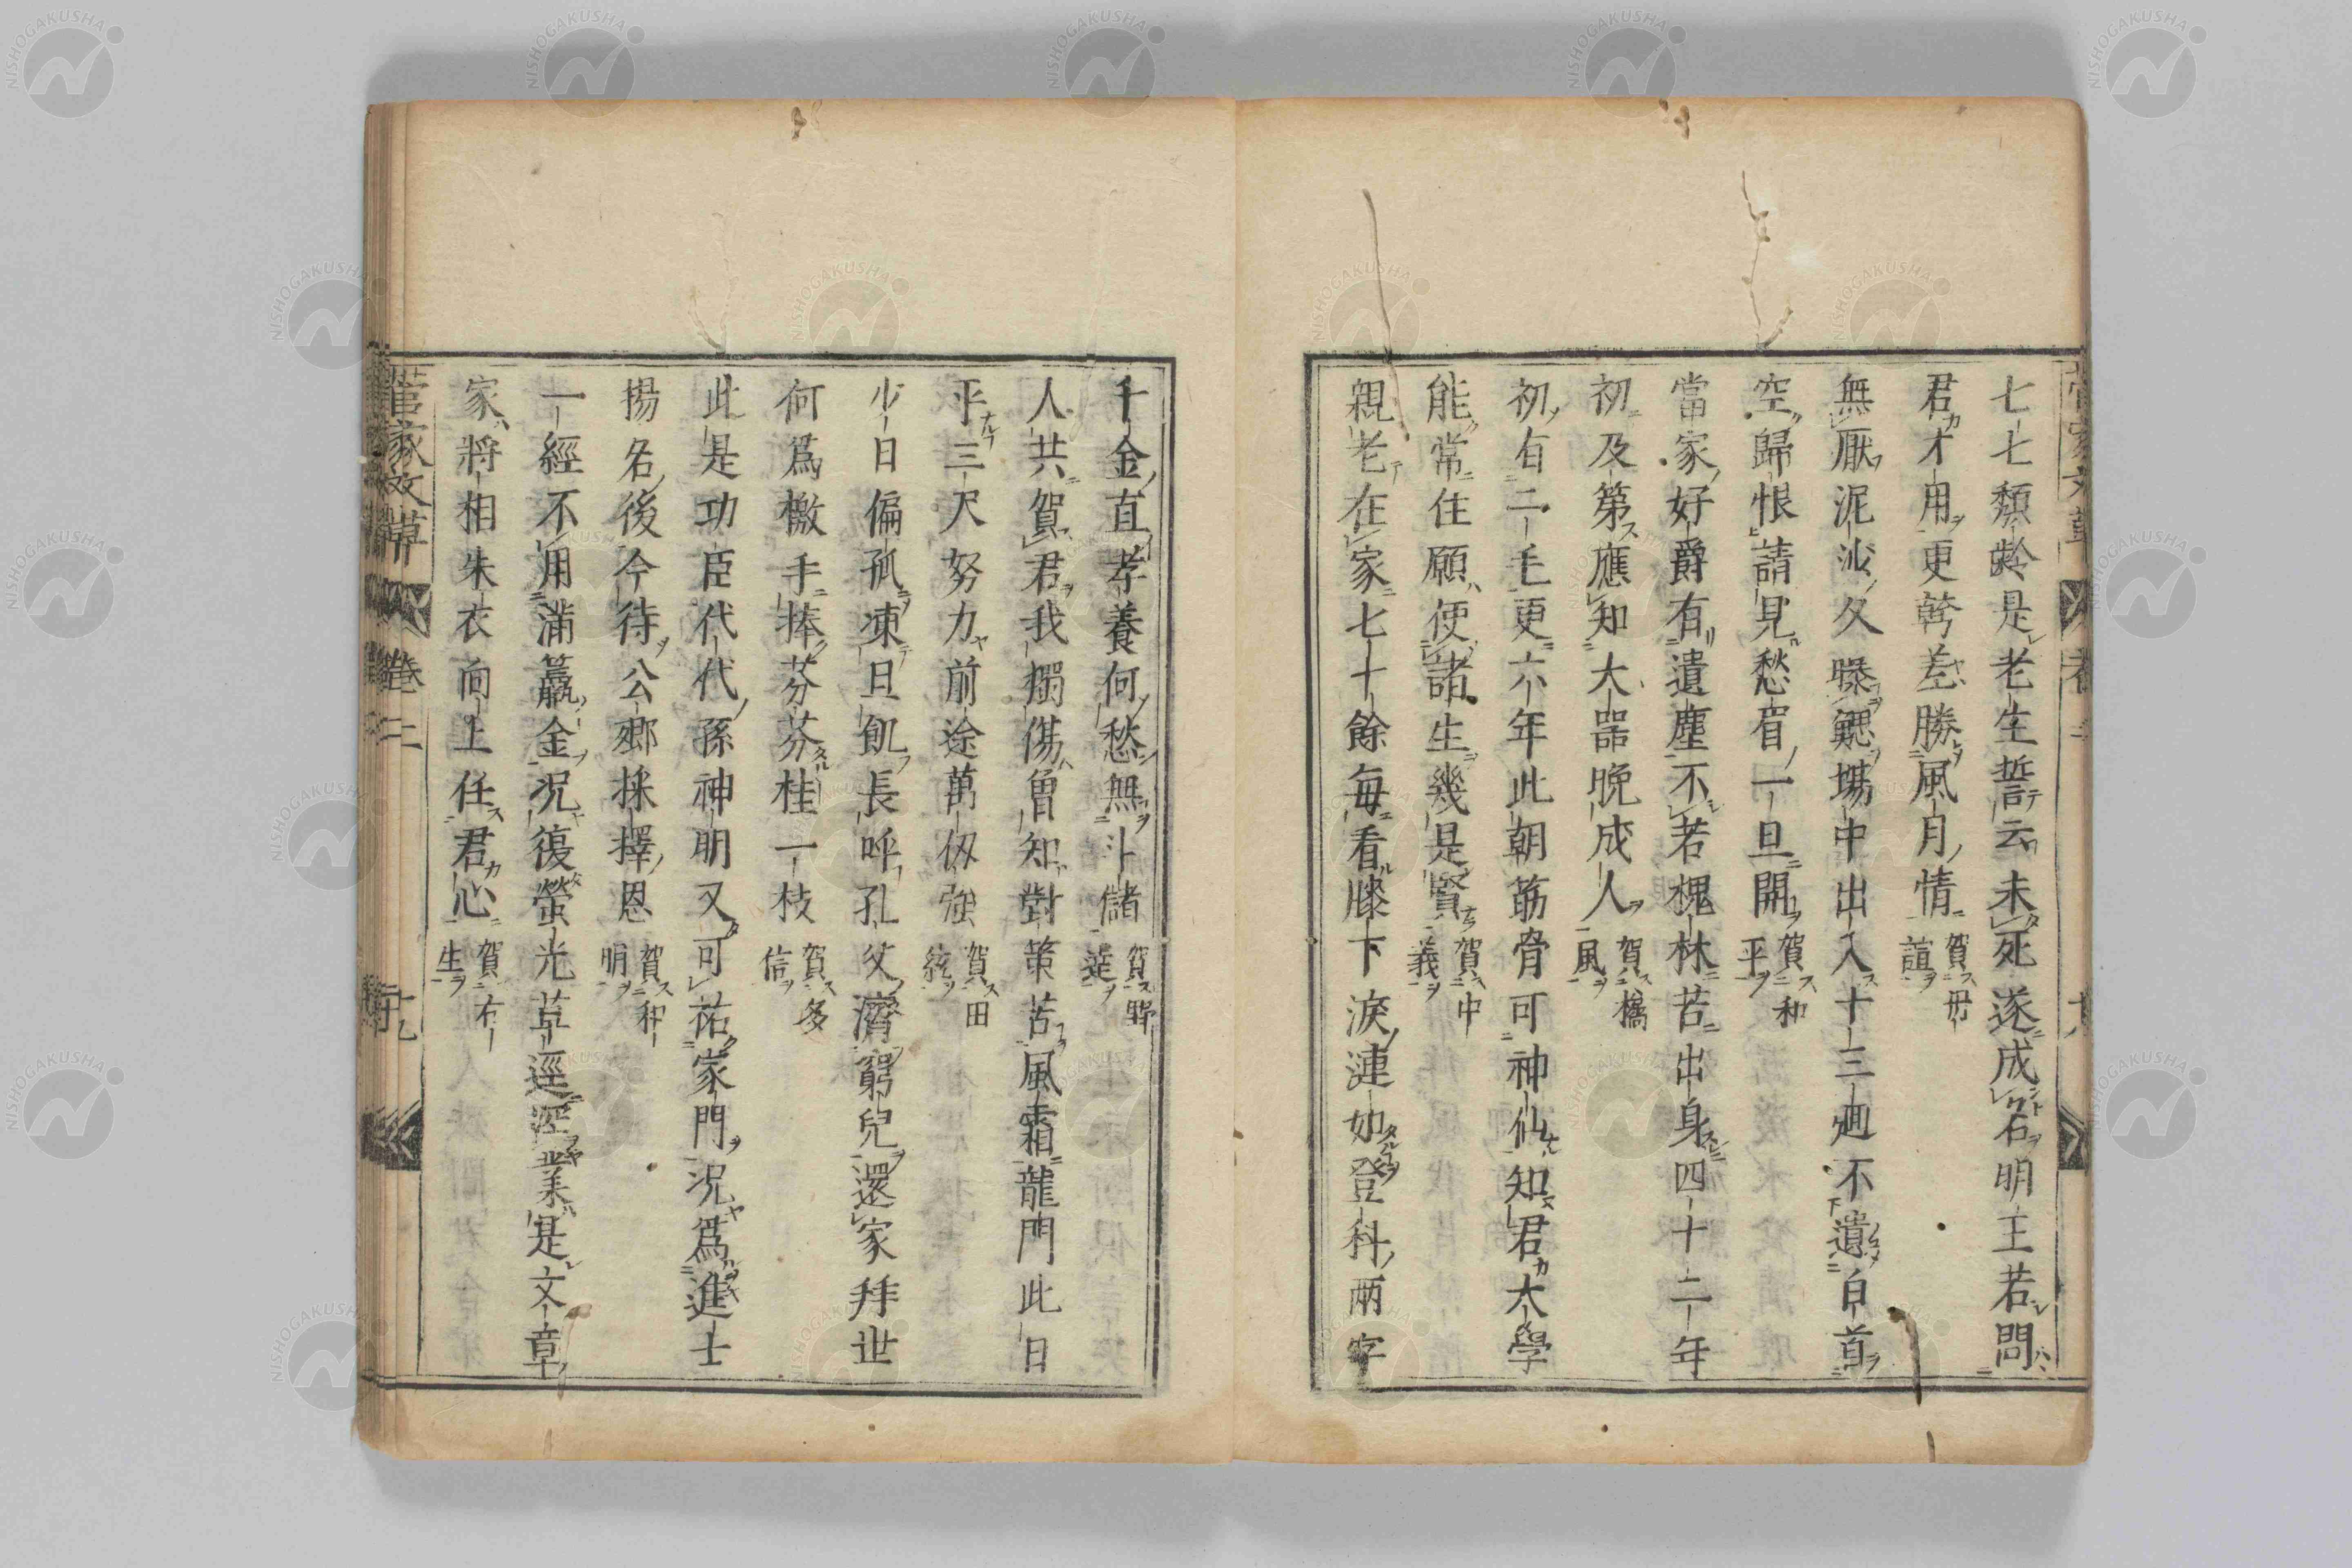 七七頽齡是老生誓云未死遂成名明王若問
君才用更幹差勝風月情賀丗誼
無厭泥沙久曝鰓場中出入十三廻不遺白首
空歸恨請見愁眉一旦開賀和平
當家好爵有遺塵不若槐林苦出身四十二年
初及第應知大器晚成人賀橘風
初有二毛更六年此朝筋骨可神仙知君大學
能常住願使諸生幾是賢賀中義
親老在家七十餘每看膝下淚漣如登科兩字
千金直孝養何愁無斗儲賀野達
人共賀君我獨傷曾知對策苦風霜龍門此日
平三尺努力前途萬仭強賀田絃
少日偏孤凍且飢長呼孔父濟窮兒還家拜世
何爲檄手捧芬芬桂一枝賀多信
此是功臣代代孫神明又可祐家門況爲進士
揚名後今待公鄉採擇恩賀和明
一經不用滿籯金況復螢光草逕深業是文章
家將相朱衣向上任君心賀右生
菅家文草 卷二 十九
NISHOGAKUSHA